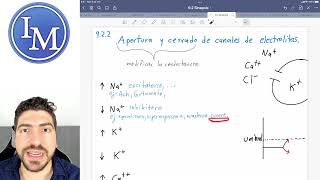 IM
9.2 Sinapsis
9.2.2
Apertura y cerrado de canales de electrolitos.
modifica la conductancia
Na⁺
Ca⁺⁺
Cl⁻
K⁺
↑ Na⁺ excitatorio, ...
ej: Ach, Glutamato,
↓ Na⁺ inhibitorio
umbral
↑ K⁺
↓ K⁺
↑ Ca⁺⁺